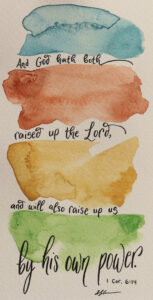 And God hath both
raised up the Lord,
and will also raise up us
by his own power.
1 Cor. 6:14